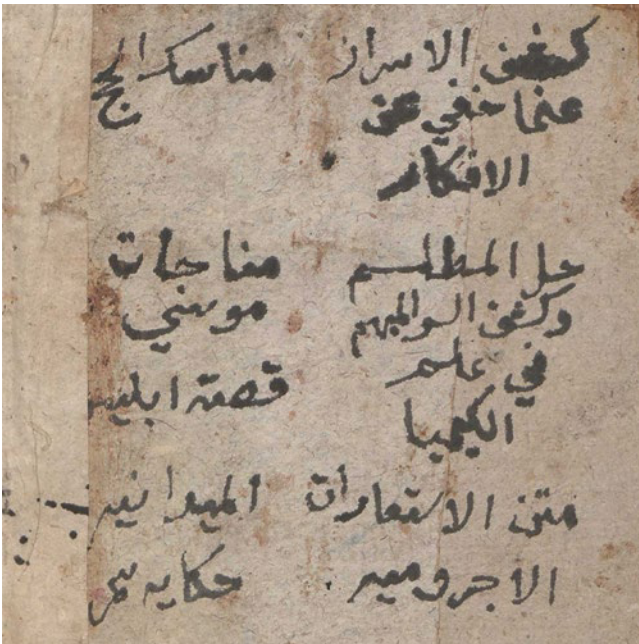 كشف الاسرار
عنما خفي عن
الافكار
حل المطلسم
وكشف السر المبهم
في علم
الكيميا
متن الاستعارات
الاجروميه
مناسك الحج
مناجات
موسي
قصة ابليس
الميدانيه
حكايه